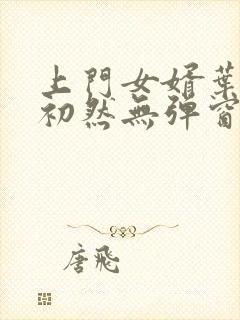 上門女婿葉
初然無彈窗
唐飛